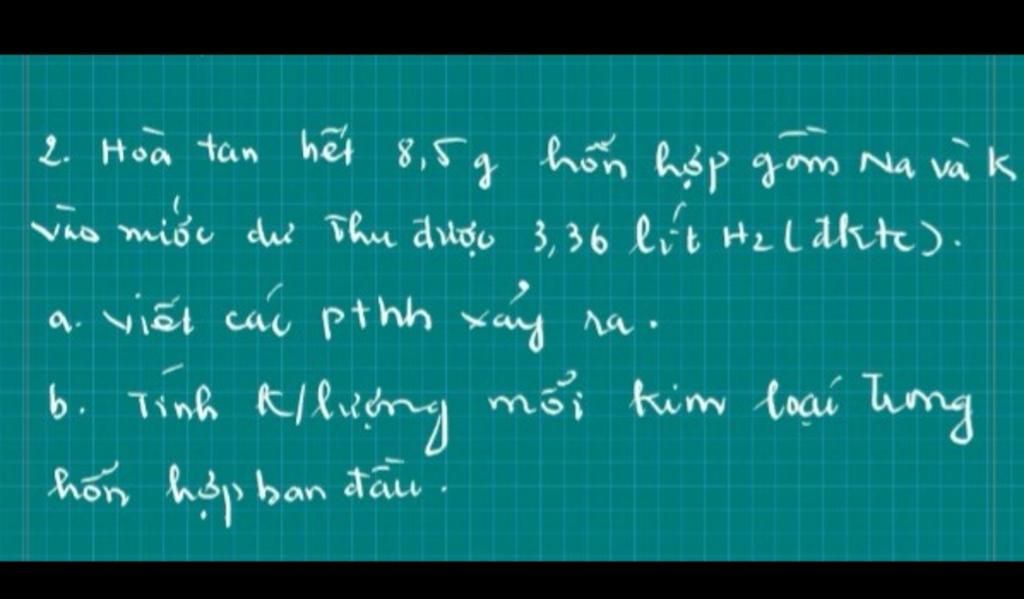 2. Hoà tan hết 8,5g hỗn hợp gồm Na và K
vào nước dư thu được 3,36 lít H2 (đktc).
a. viết các pthh xảy ra.
b. Tính k/lượng mỗi kim loại trong
hỗn hợp ban đầu.